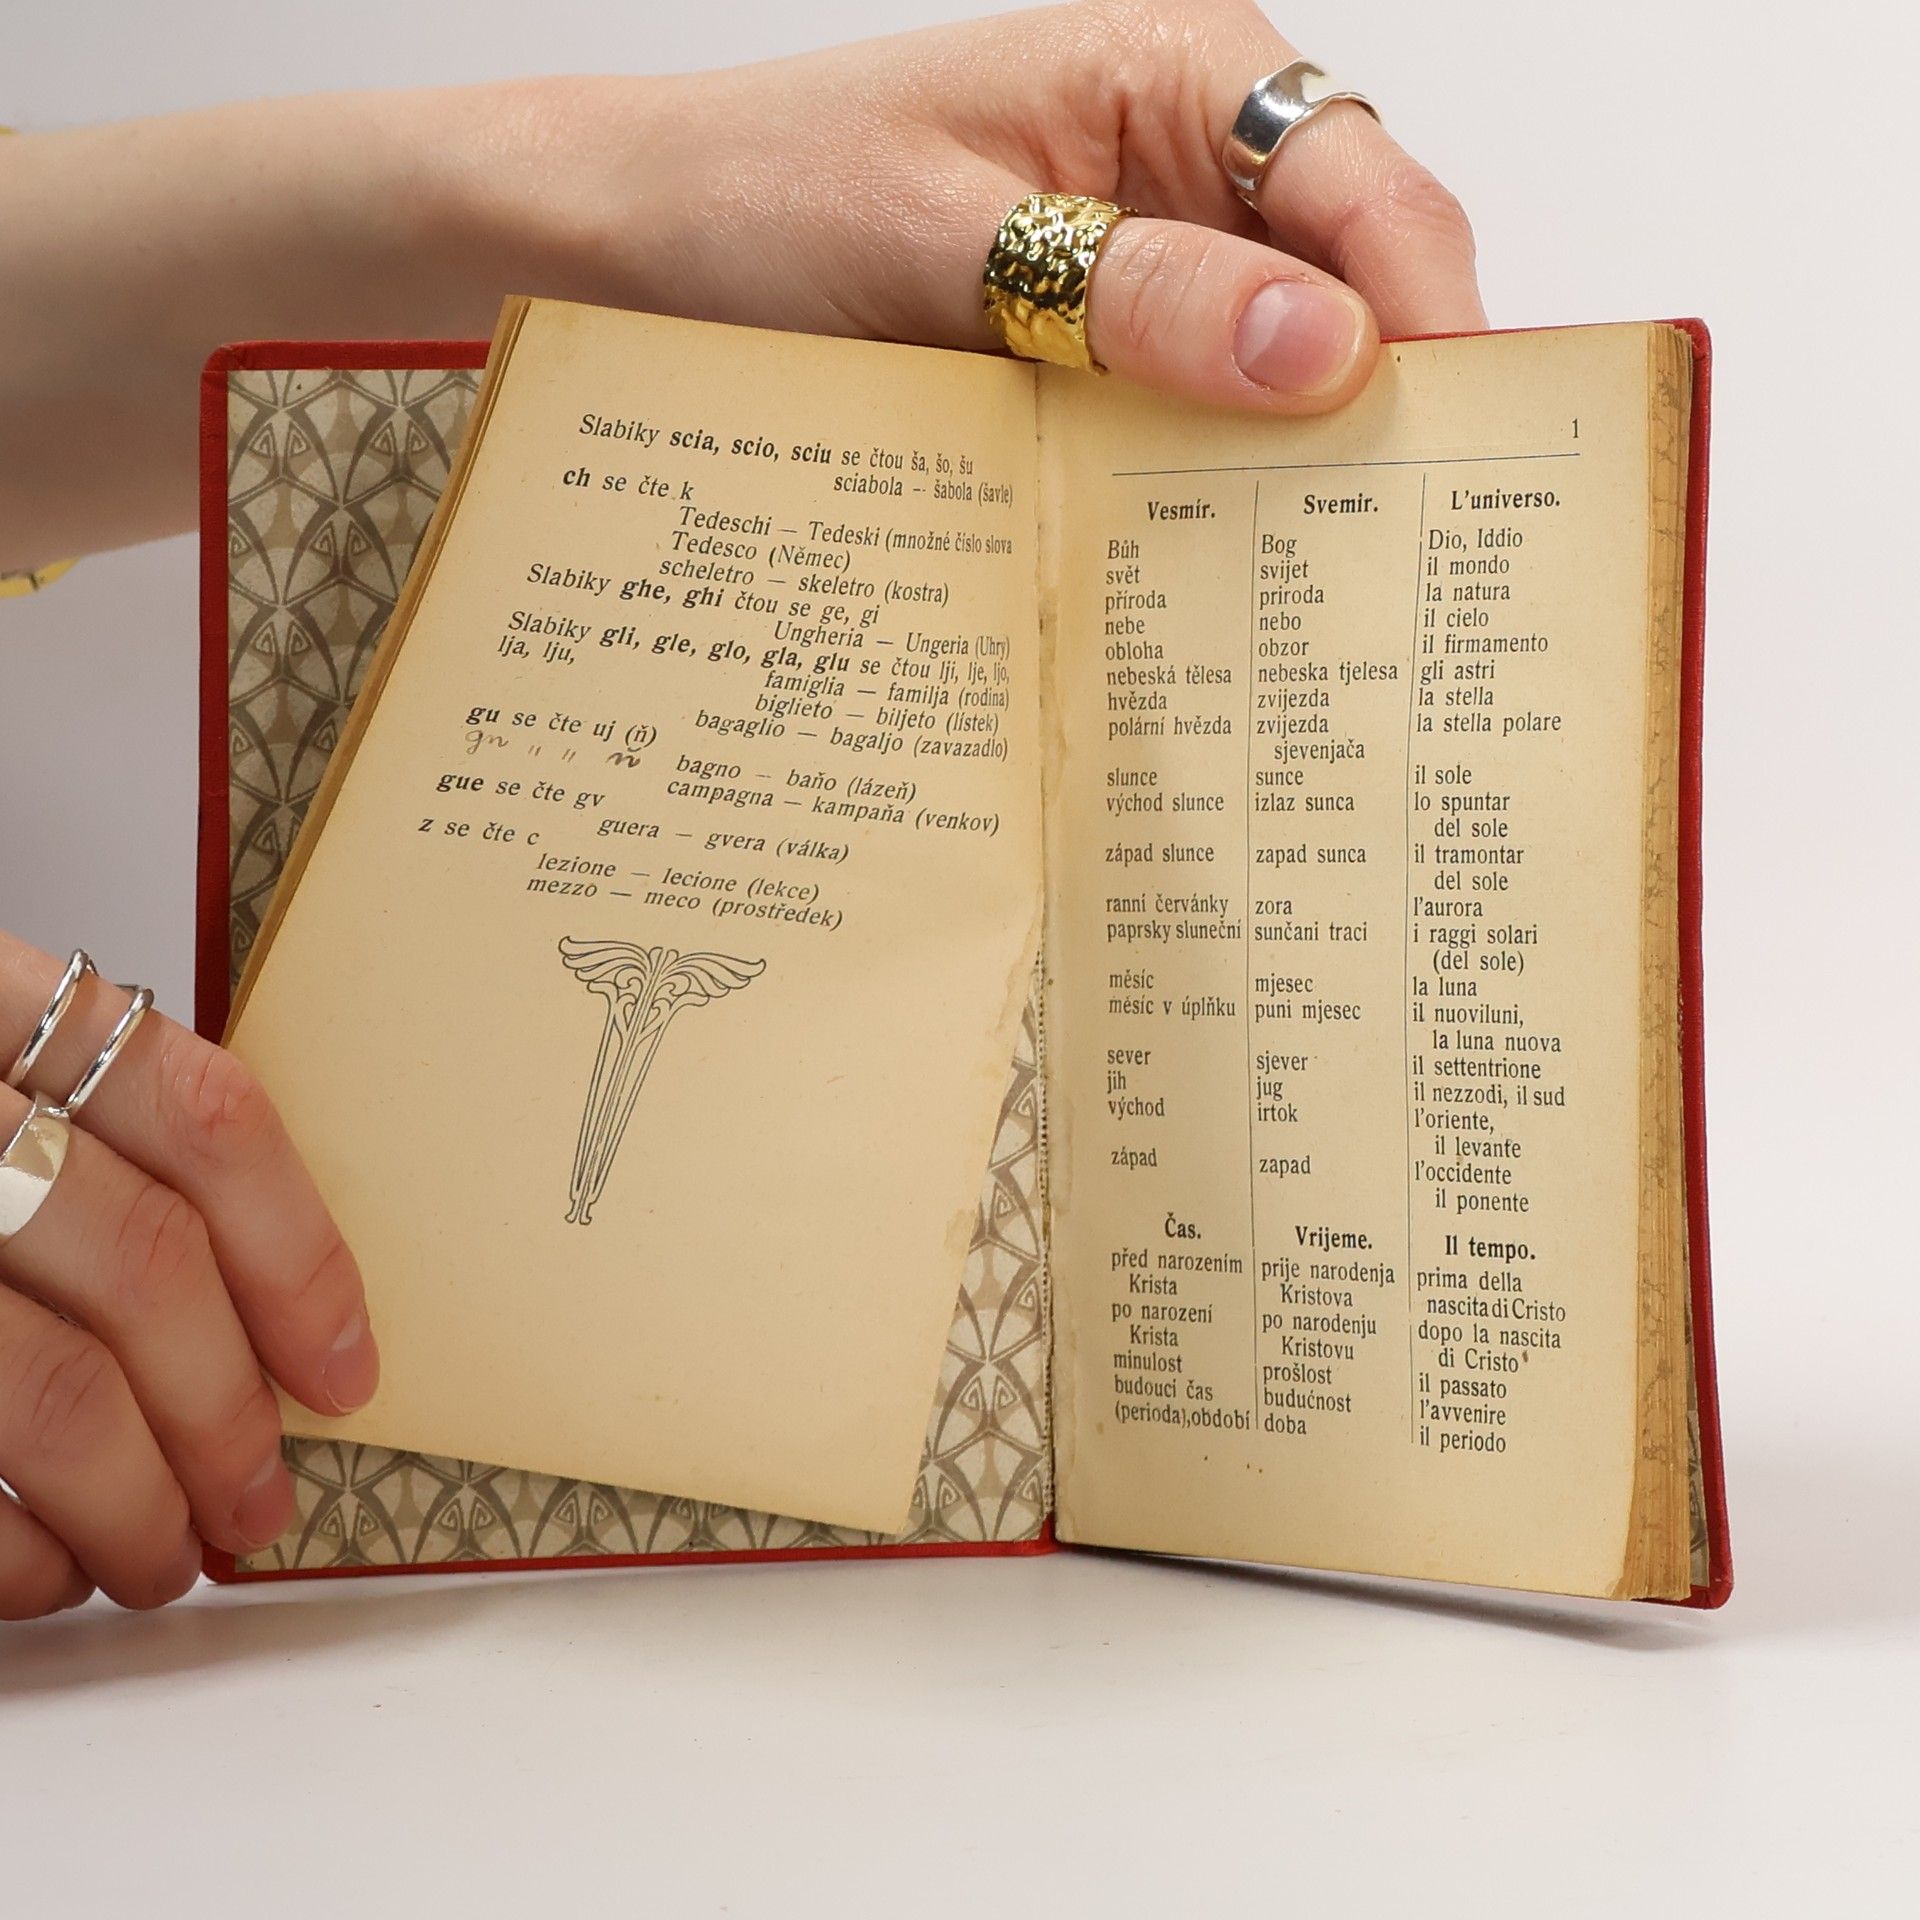 Slabiky scia, scio, sciu se čtou ša, šo, šu
sciabola -- šabola (šavle)
ch se čte k
Tedeschi — Tedeski (množné číslo slova
Tedesco (Němec)
scheletro — skeletro (kostra)
Slabiky ghe, ghi čtou se ge, gi
Ungheria — Ungeria (Uhry)
Slabiky gli, gle, glo, gla, glu se čtou lji, lje, ljo,
lja, lju,
famiglia — familja (rodina)
biglieto — biljeto (lístek)
bagaglio — bagaljo (zavazadlo)
gu se čte uj (ň)
gn " " ň
bagno — baňo (lázeň)
campagna — kampaňa (venkov)
gue se čte gv
guera — gvera (válka)
z se čte c
lezione — lecione (lekce)
mezzo — meco (prostředek)
1
Vesmír. Svemir. L'universo.
Bůh Bog Dio, Iddio
svět svijet il mondo
příroda priroda la natura
nebe nebo il cielo
obloha obzor il firmamento
nebeská tělesa nebeska tjelesa gli astri
hvězda zvijezda la stella
polární hvězda zvijezda la stella polare
sjevenjača
slunce sunce il sole
východ slunce izlaz sunca lo spuntar
del sole
západ slunce zapad sunca il tramontar
del sole
ranní červánky zora l'aurora
paprsky sluneční sunčani traci i raggi solari
(del sole)
měsíc mjesec la luna
měsíc v úplňku puni mjesec il nuoviluni,
la luna nuova
sever sjever il settentrione
jih jug il nezzodi, il sud
východ irtok l'oriente,
il levante
západ zapad l'occidente
il ponente
Čas. Vrijeme. Il tempo.
před narozením prije narodenja prima della
Krista Kristova nascita di Cristo
po narození po narodenju dopo la nascita
Krista Kristovu di Cristo
minulost prošlost il passato
budoucí čas budućnost l'avvenire
(perioda),období doba il periodo